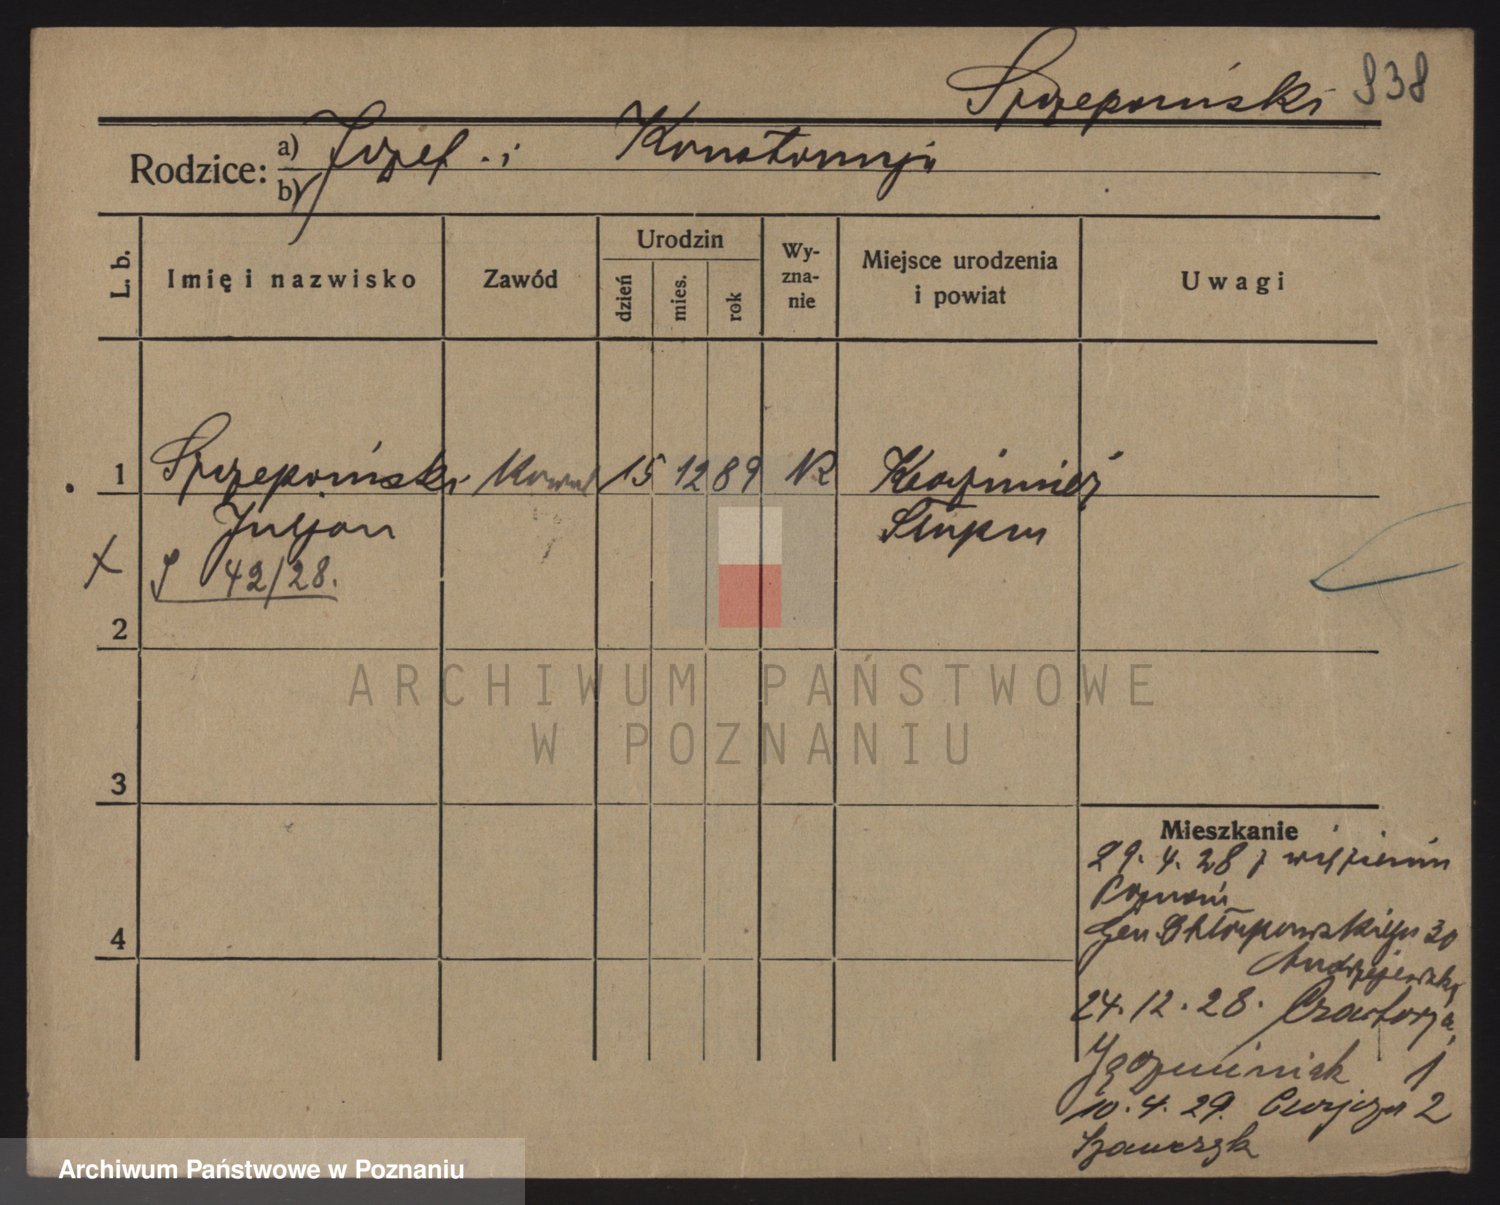 Szczepański 938
Rodzice: a) Józef i Konstancja
b)
L. b.
Imię i nazwisko
Zawód
Urodzin
dzień
mies.
rok
Wy-
zna-
nie
Miejsce urodzenia
i powiat
Uwagi
1 Szczepański Kowal 15 12 89 Kazimierz
Juljan Słupca
42/28.
2
3
4
Mieszkanie
29. 4. 28 z więzienia
Poznań
Gen. Chłapowskiego 30
Andrzejewski
24. 12. 28. Czartorja
1
10. 4. 29. 2
Szawczyk
ARCHIWUM PAŃSTWOWE
W POZNANIU
Archiwum Państwowe w Poznaniu